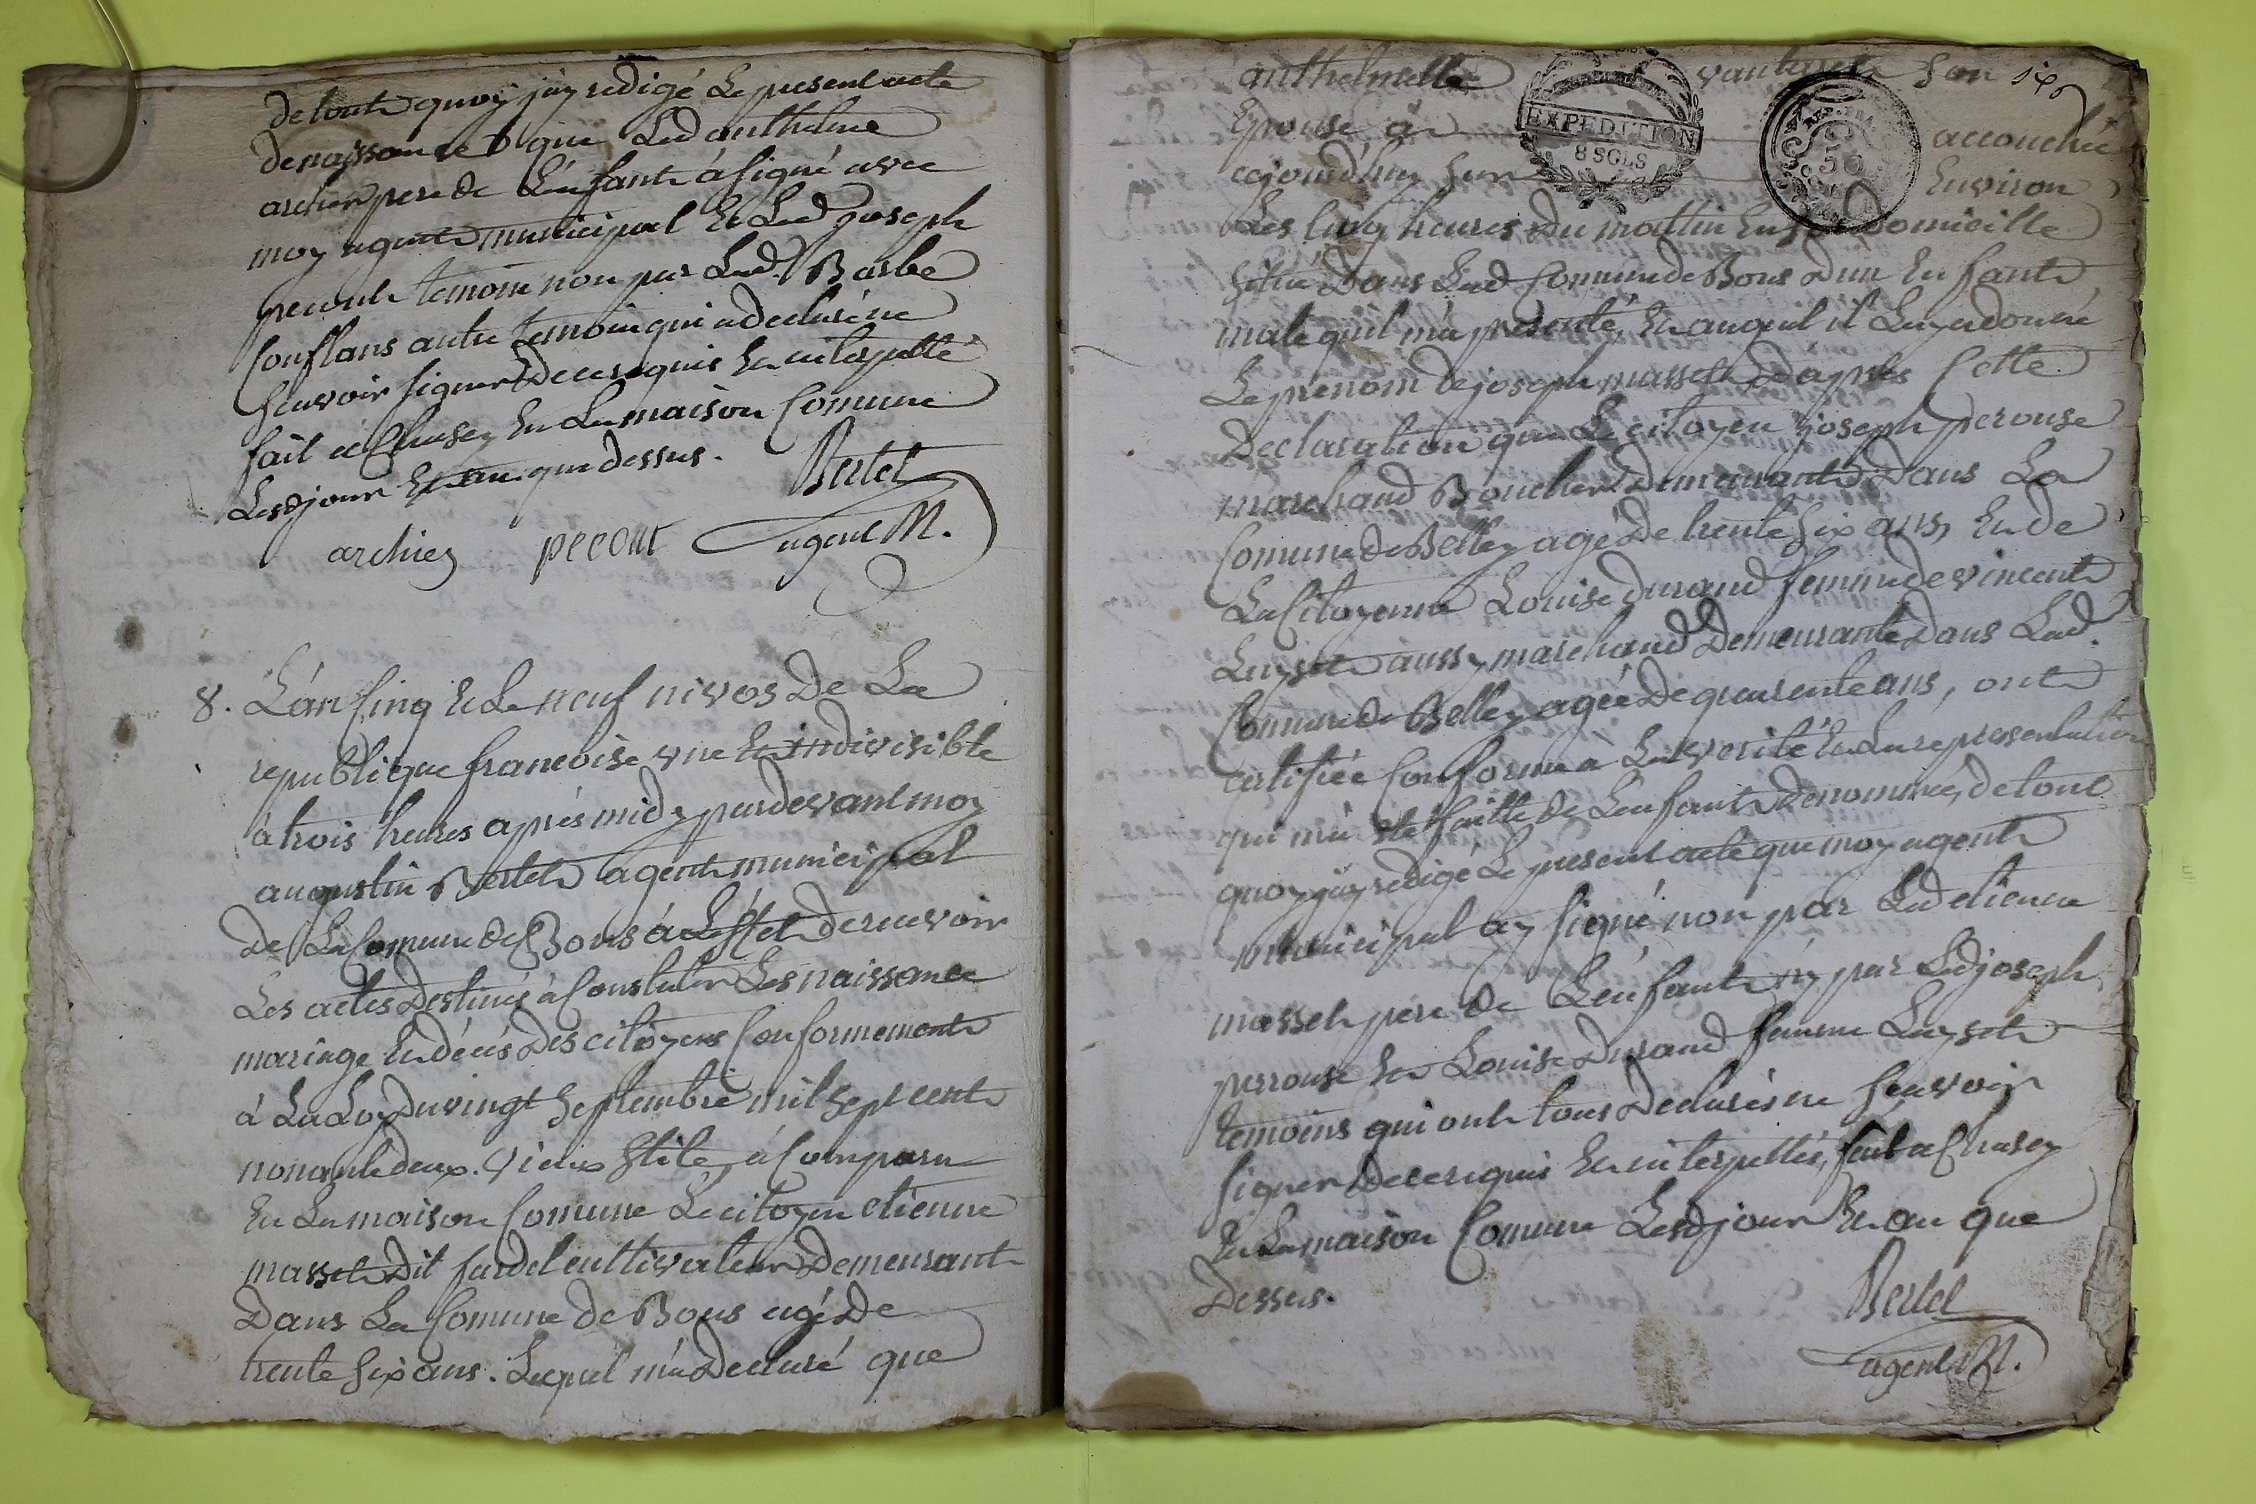 de toute quoy j'ay redigé Le present acte
de naissance que Led anthelme
archier pere de L'enfant à signé avec
moy agent municipal Et Led joseph
pecout temoin non par Lad. Barbe
Conflans autre temoin qui a declaré ne
scavoir signer de ce requis Et interpellé
fait à Chasey En La maison Comune
Lesd jour Et an que dessus.
Bertet
archier pecout agent M.
8. L'an Cinq Et Le neuf nivos de La
republique francoise une Et indivisible
à trois heures après midy pardevant moy
augustin Bertet agent municipal
de La Comune de Bons à L'effet de recevoir
Les actes destinés à Constater Les naissance
mariage Et décés des citoyens Conformement
à La Loy du vingt septembre mil sept cent
nonante deux. vieux stile, à Comparu
En La maison Comune Le citoyen etienne
masset dit fardel cultivateur demeurant
dans La Comune de Bons agé de
trente six ans. Lequel m'a declaré que
anthelmette son six
Epouse a accouchée
aujourd'huy sur Environ
Les Cinq heures du mattin En son domicille
situé dans Lad Comune de Bons d'un Enfant
male qu'il m'a presenté, Et auquel il Luy a donné
Le prenom de joseph masset d'après Cette
declaration que Le citoyen joseph perouse
marchand Boucher demeurant dans La
Comune de Belley agé de trente six ans, Et de
La Citoyenne Louise durand femme de vincent
Luyset aussy marchand demeurante dans Lad.
Comune de Belley agée de quarente ans, ont
certifiée Conforme à La verité Et La representation
qui m'a eté faitte de L'enfant denommée, de tout
quoy j'ay redigé Le present acte que moy agent
municipal ay signé non par Led etienne
masset pere de L'enfant ny par Led joseph
perouse Et Louise durand femme Luyset
temoins qui ont tous declarés ne scavoir
signer de ce requis Et interpellés, fait a Chasey
En La maison Comune Lesd jour Et an que
Dessus.
Bertet
agent M.
EXPEDITION
8 SOLS
REP. FRA.